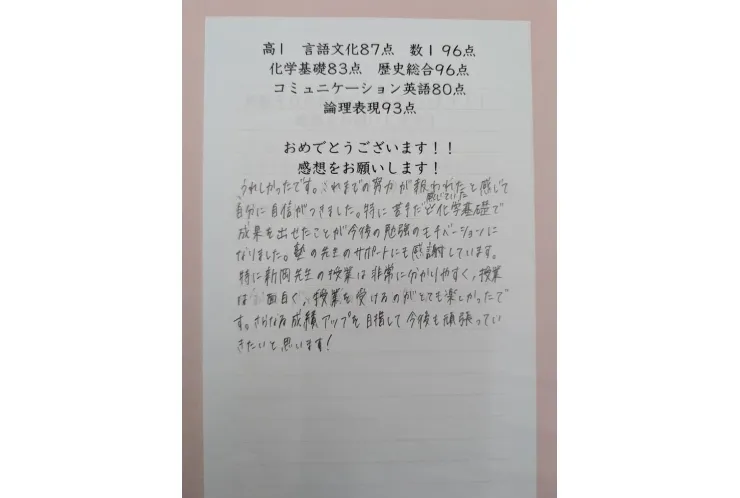 高1　言語文化87点　数Ⅰ96点
化学基礎83点　歴史総合96点
コミュニケーション英語80点
論理表現93点
おめでとうございます！！
感想をお願いします！
うれしかったです。これまでの努力が報われたと感じて
自分に自信がつきました。特に苦手だと感じていた化学基礎で
成果を出せたことが今後の勉強のモチベーションに
なりました。塾の先生のサポートにも感謝しています。
特に新岡先生の授業は非常に分かりやすく、授業
は面白く、授業を受けるのがとても楽しかったで
す。さらなる成績アップを目指して今後も頑張ってい
きたいと思います！